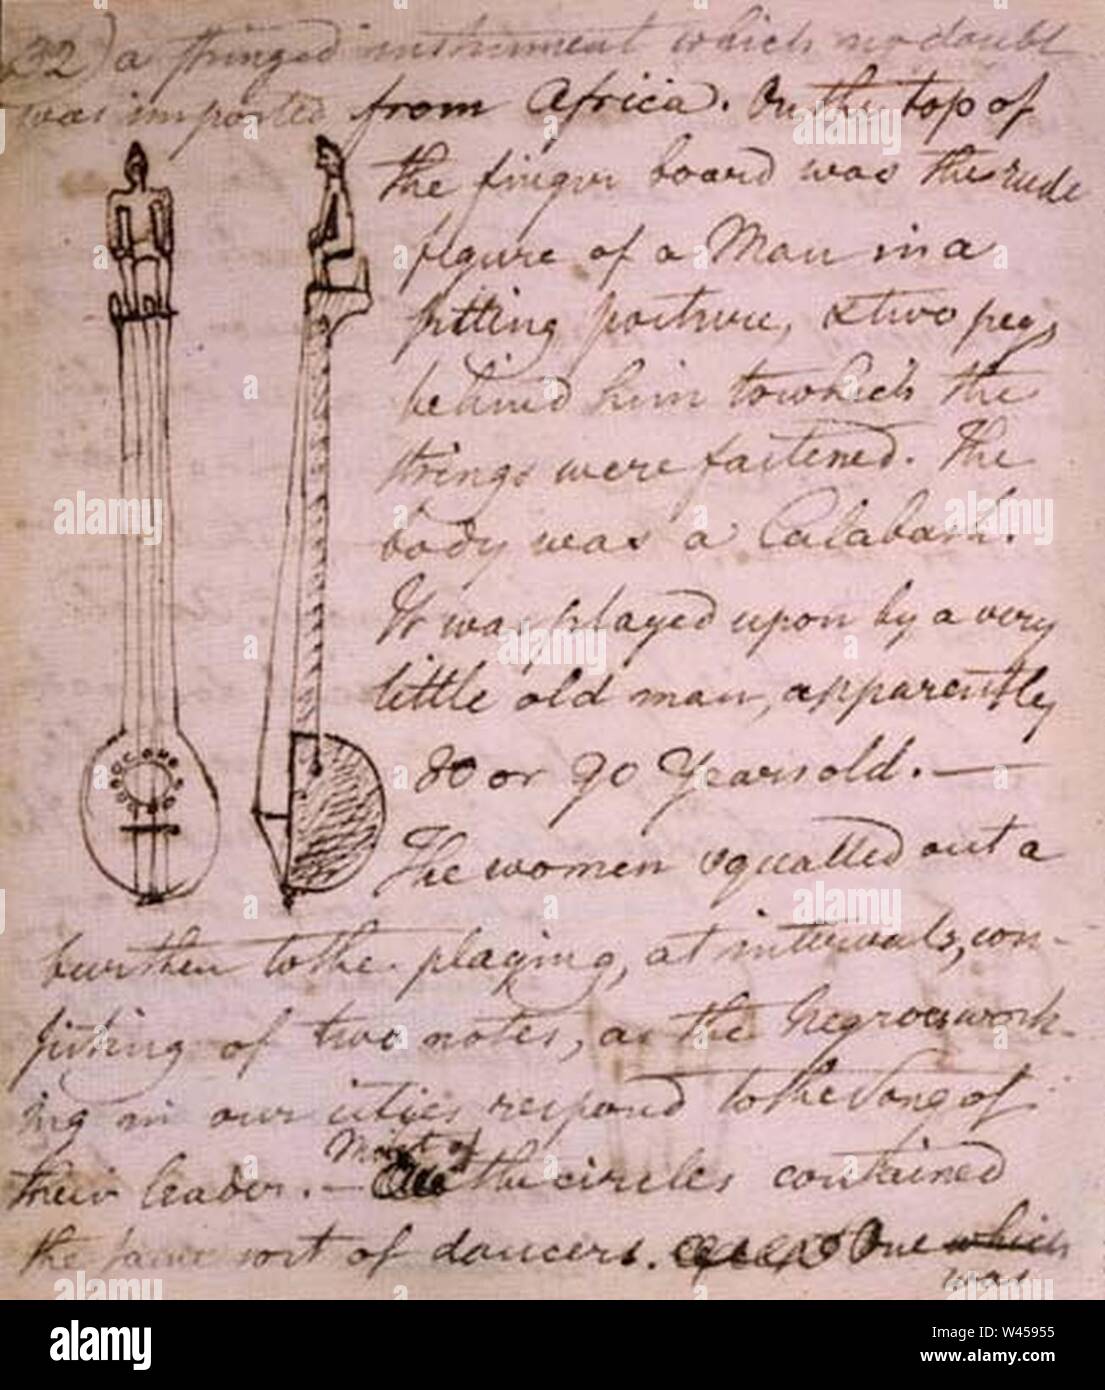 32) a stringed instrument which no doubt
was imported from Africa. On the top of
the finger board was the rude
figure of a Man in a
sitting posture, & two pegs
behind him to which the
strings were fastened. The
body was a Calabash.
It was played upon by a very
little old man, apparently
80 or 90 Years old. —
The women squalled out a
burthen to the playing, at intervals, con-
sisting of two notes, as the Negroes work-
ing in our cities respond to the Song of
their leader. — Most of the circles contained
the same sort of dancers. One which
was
alamy
Image ID: W45955
www.alamy.com